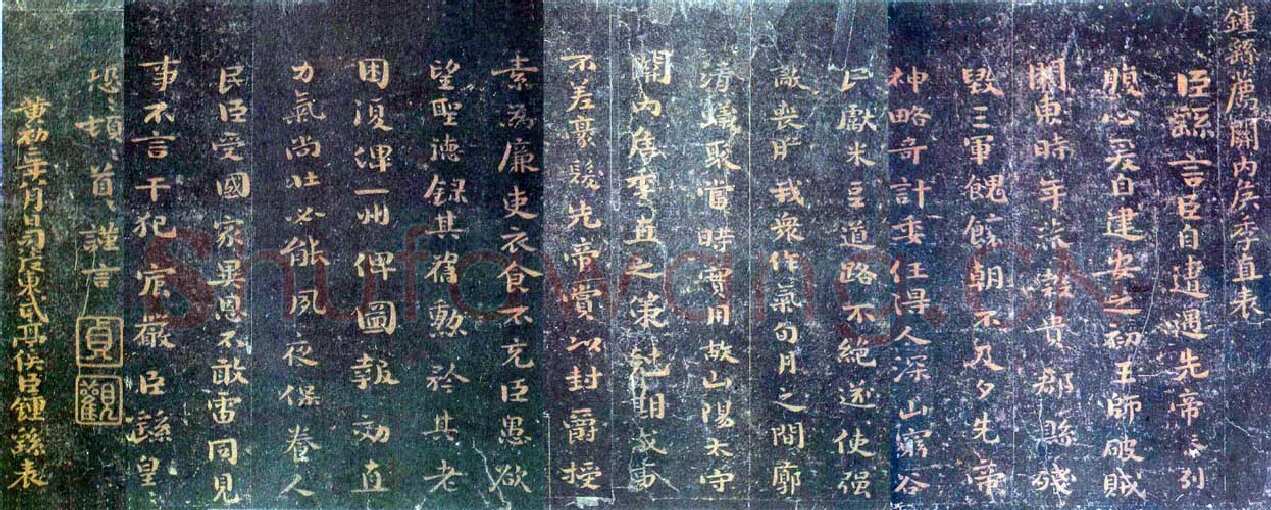 鍾繇薦關內侯季直表
臣繇言臣自遭遇先帝忝列
腹心爰自建安之初王師破賊
關東時年荒穀貴郡縣殘
毀三軍餽饟朝不及夕先帝
神略奇計委任得人深山窮谷
民獻米豆道路不絕遂使强
敵喪膽我衆作氣旬月之間廓
清蟻聚當時實用故山陽太守
關內侯季直之策尅期成事
不差豪髮先帝賞以封爵授
素為廉吏衣食不充臣愚欲
望聖德錄其舊勳矜其老
困復俾一州俾圖報効直
力氣尚壯必能夙夜保養人
民臣受國家異恩不敢雷同見
事不言干犯宸嚴臣繇皇
恐〻頓〻首〻謹言
貞觀
黃初二年八月日司徒東武亭侯臣鍾繇表
Shufawang.CN